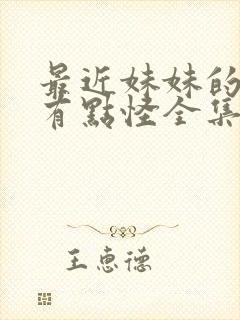 最近妹妹的
有點怪全集
王惠德